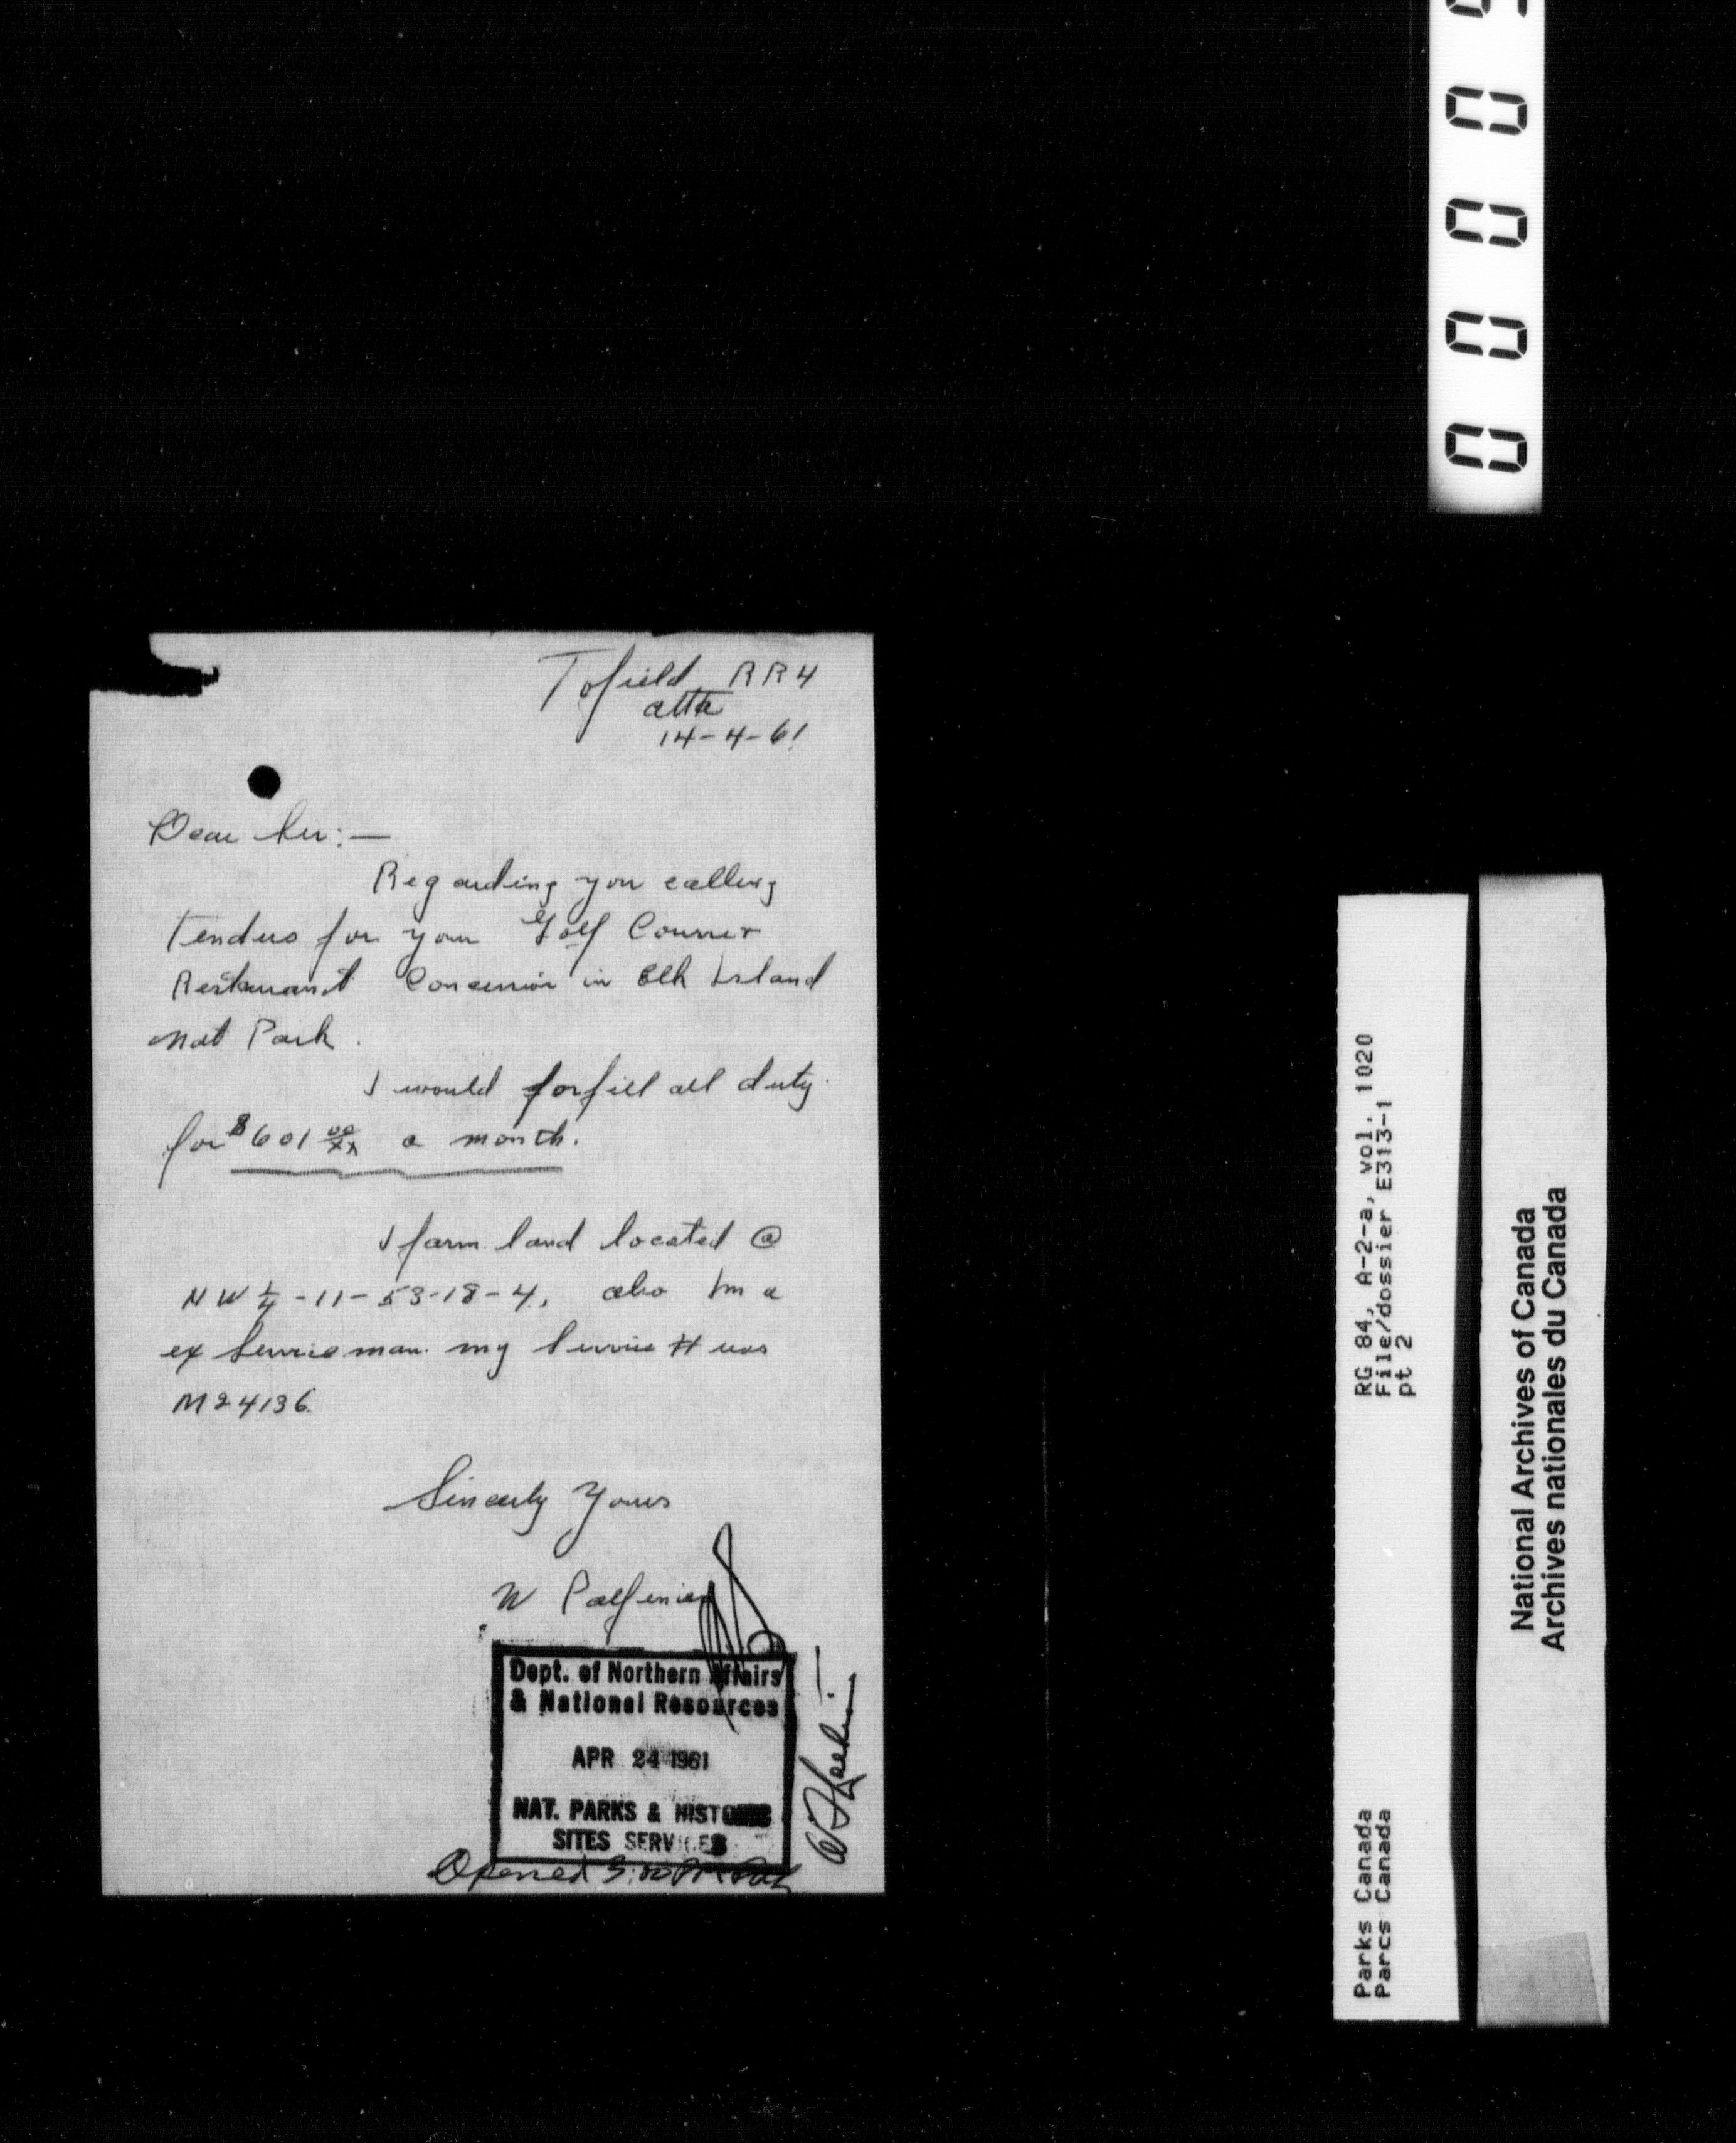 Tofield RR4
alta
14-4-61
Dear Sir:—
Regarding you calling
Tenders for your Golf Course &
Resturant Concession in Elk Island
Nat Park.
I would forfill all duty
for $601 00/xx a month.
I farm land located @
NW 1/4 -11-53-18-4, also Im a
ex Service man. my Service # was
M24136
Sincerly Yours
W
Dept. of Northern Affairs
& National Resources
APR 24 1961
NAT. PARKS & HISTORIC
SITES SERVICES
Opened 3:00 PM
0 0 0 0
RG 84, A-2-a, vol. 1020
File/dossier E313-1
pt 2
Parks Canada
Parcs Canada
National Archives of Canada
Archives nationales du Canada